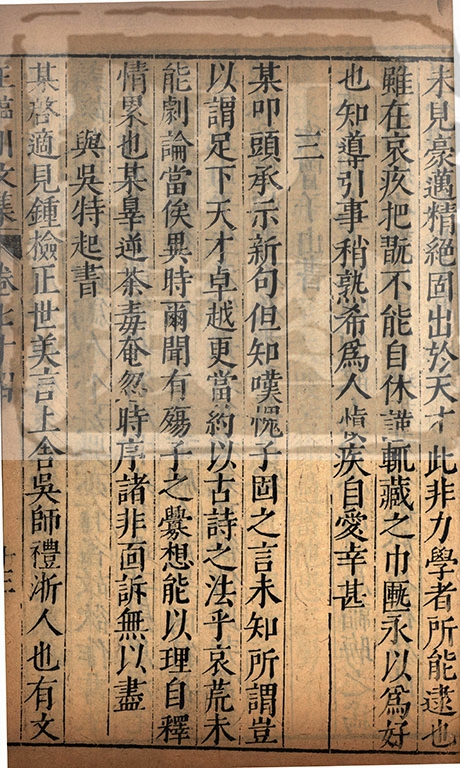 未見豪邁精絕固出於天才此非力學者所能逮也
雖在哀疚把翫不能自休謹輒藏之巾匭永以爲好
也知導引事稍熟希爲人慎疾自愛幸甚
三
某叩頭承示新句但知嘆愧子固之言未知所謂豈
以謂足下天才卓越更當約以古詩之法乎哀荒未
能劇論當俟異時爾聞有殤子之釁想能以理自釋
情累也某辠逆荼毒奄忽時序諸非面訴無以盡
與吳特起書
某啓適見鍾檢正世美言上舍吳師禮浙人也有文
王臨川文集 卷七十四 十三